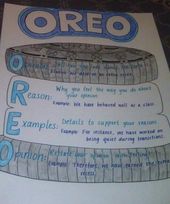 OREO
Opinion: Tell how you feel about the topic
Example: We deserve an extra recess.
Reason: Why you feel the way you do about
your opinion
Example: We have behaved well as a class.
Examples: Details to support your reasons
Example: For instance, we have worked on
being quiet during transitions.
Opinion: Restate your opinion with feelings
Example: Therefore, we have earned the extra
recess.